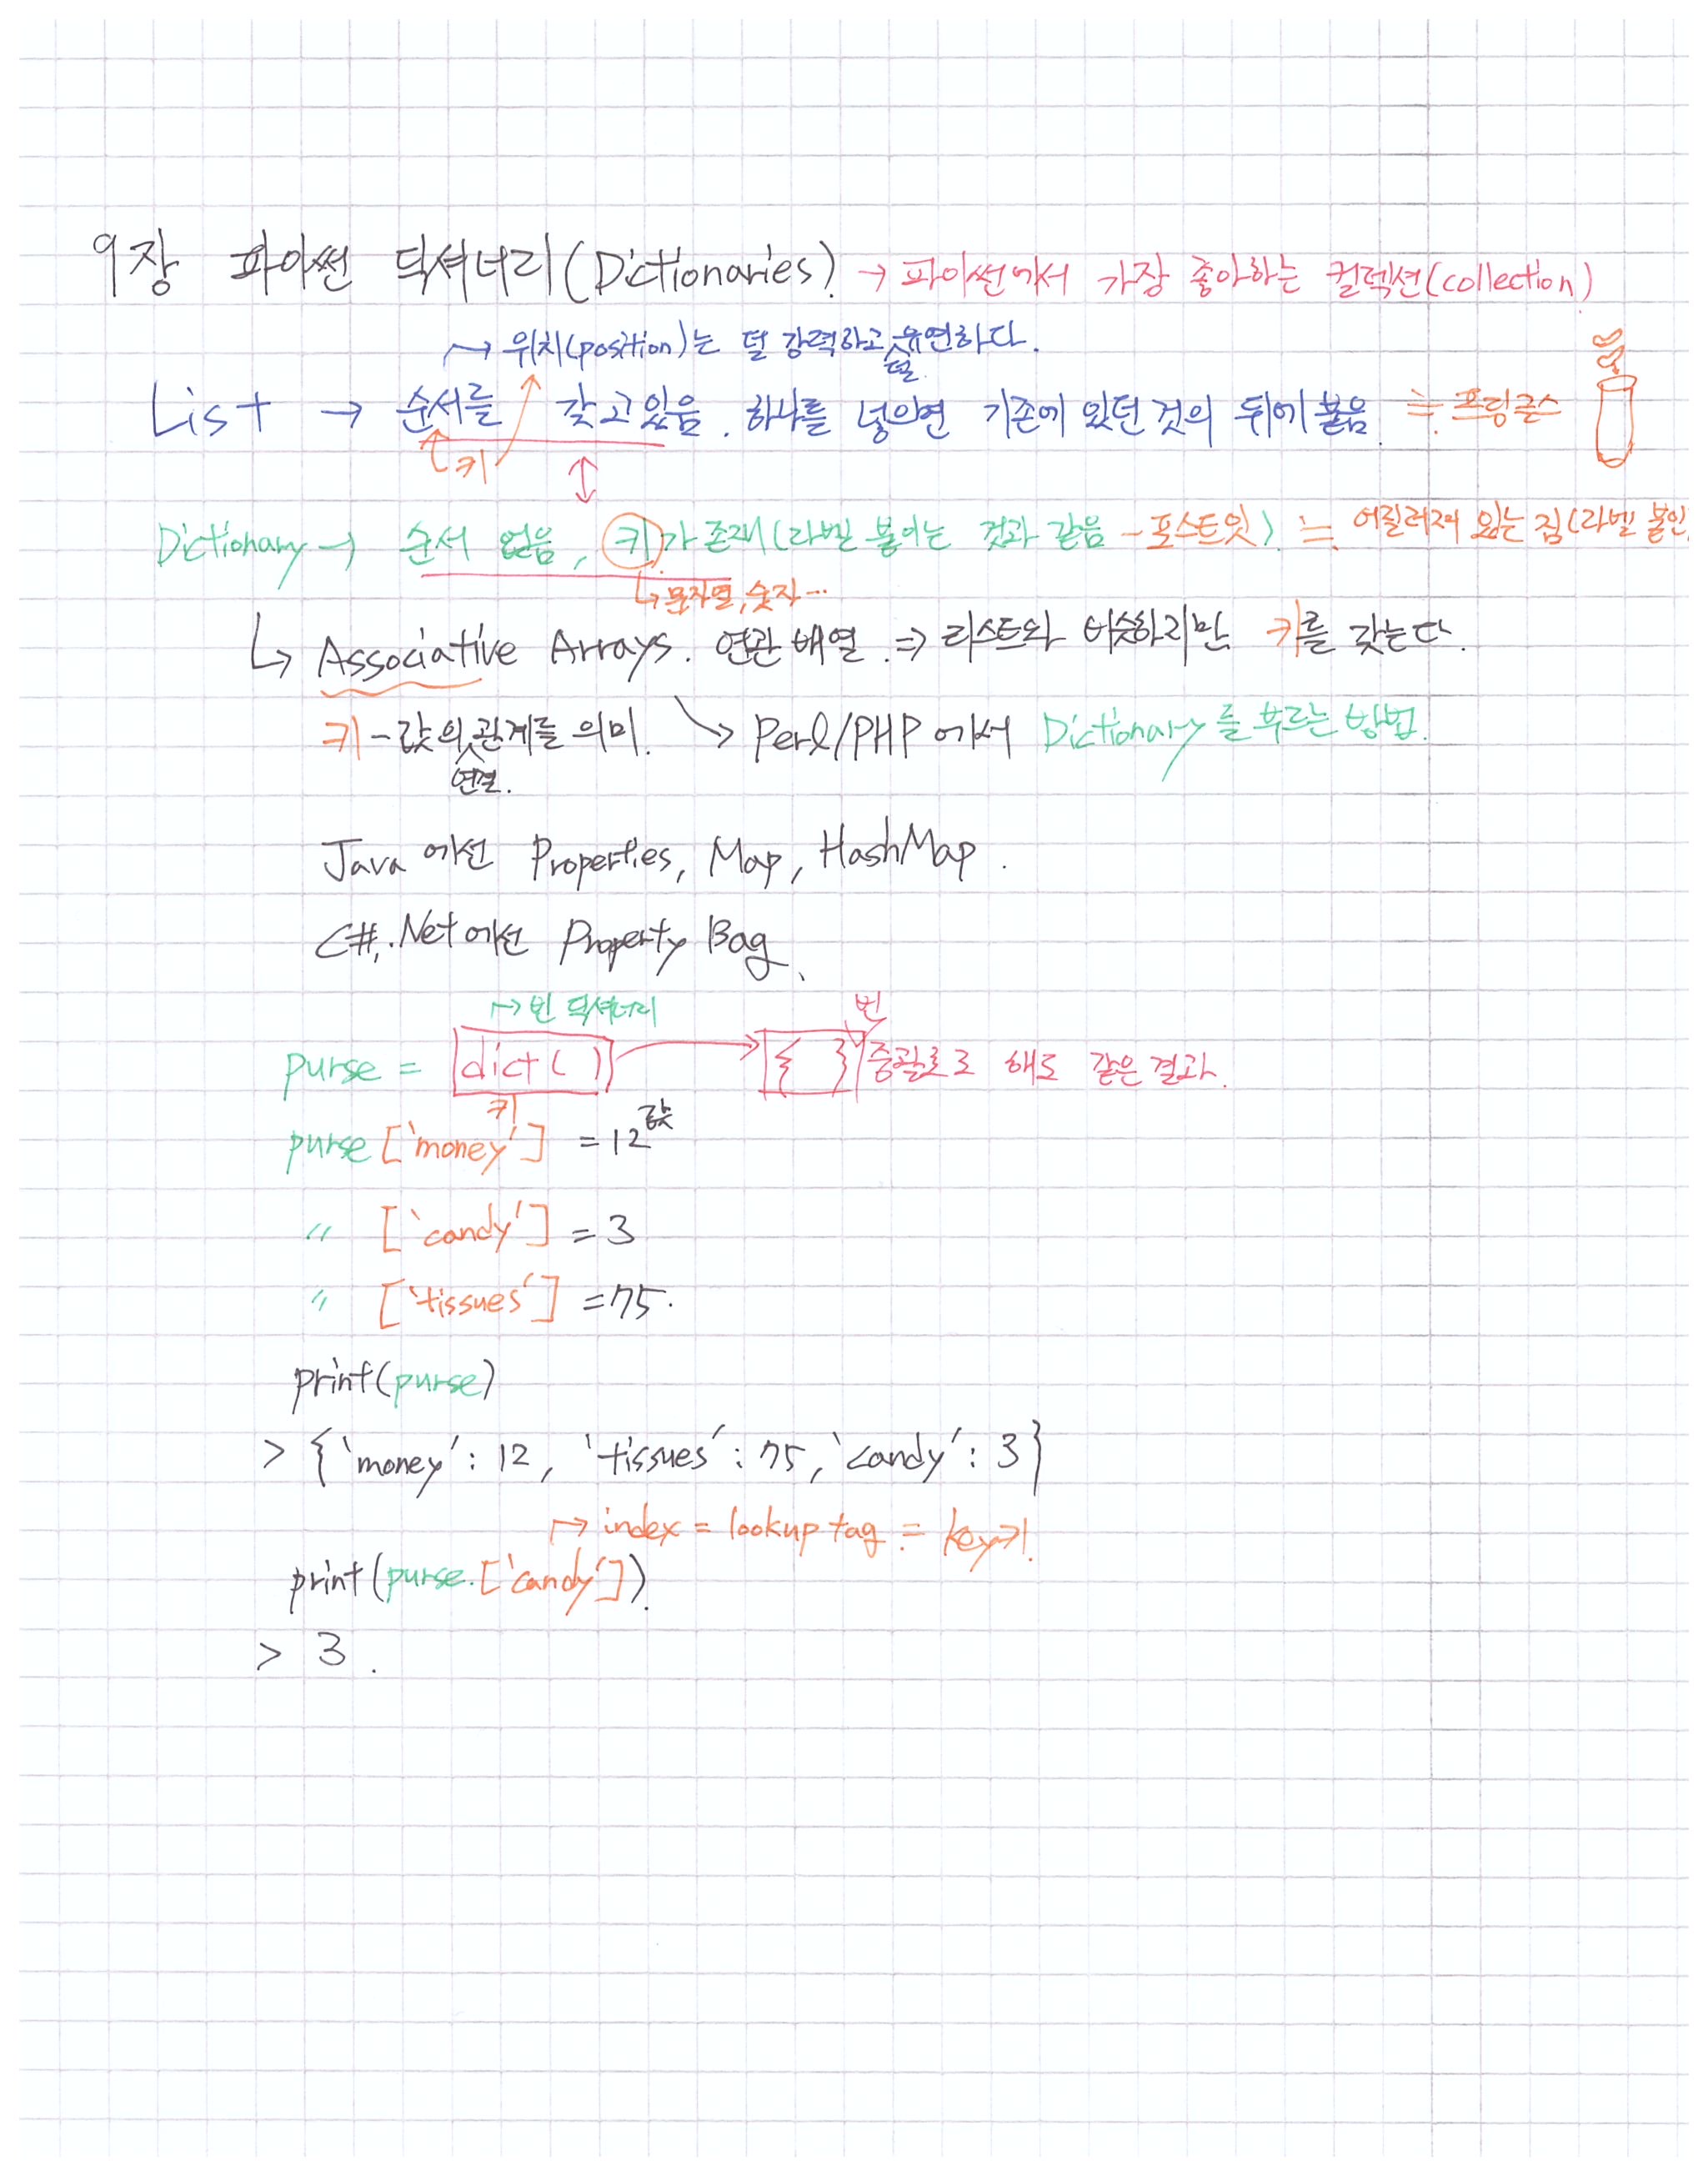 9장 파이썬 딕셔너리(Dictionaries). → 파이썬에서 가장 좋아하는 컬렉션(collection)
→ 위치(position)는 덜 강력하고 유연하다.
덜
List → 순서를 갖고있음. 하나를 넣으면 기존에 있던 것의 뒤에 붙음 ≒ 프링글스
키
Dictionary → 순서 없음, 키가 존재(라벨 붙이는 것과 같음 - 포스트잇) ≒ 어질러져 있는 짐(라벨 붙인
↳ 문자열, 숫자…
↳ Associative Arrays. 연관 배열 ⇒ 리스트와 비슷하지만 키를 갖는다.
키-값의 관계를 의미. ↘ Perl/PHP에서 Dictionary를 부르는 방법.
연결.
Java에선 Properties, Map, HashMap.
C#, .Net에선 Property Bag
↦ 빈 딕셔너리 빈
purse = dict() → { } 중괄호로 해도 같은 결과.
키 값
purse ['money'] = 12
〃 ['candy'] = 3
〃 ['tissues'] = 75.
print(purse)
> {'money': 12, 'tissues': 75, 'candy': 3}
↦ index = lookup tag = key키!
print(purse.['candy'])
> 3.